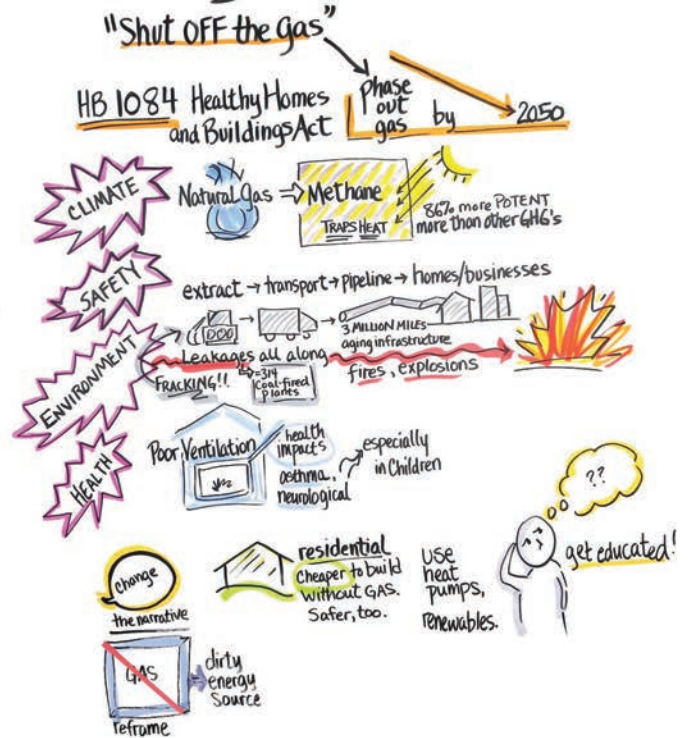 "Shut OFF the Gas"
HB 1084 Healthy Homes
and Buildings Act
Phase
out
gas
by
2050
CLIMATE
Natural Gas ⇒ Methane
TRAPS HEAT
86% more POTENT
more than other GHG's
SAFETY
extract → transport → pipeline → homes/businesses
3 MILLION MILES
aging infrastructure
ENVIRONMENT
Leakages all along
fires, explosions
FRACKING!!
=314
Coal-fired
plants
HEALTH
Poor Ventilation
health
impacts
asthma,
neurological
especially
in Children
??
get educated!
change
the narrative
residential
Cheaper to build
without GAS.
Safer, too.
USE
heat
pumps,
renewables.
GAS
dirty
energy
Source
reframe